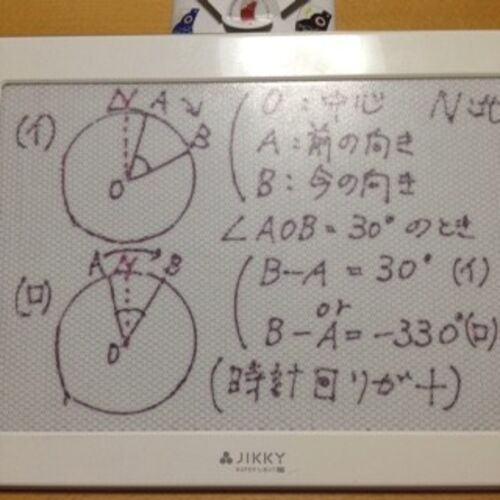 (イ)
N A
B
O
O:中心 N:北
A:前の向き
B:今の向き
∠AOB=30°のとき
(ロ)
A N B
O
B-A=30° (イ)
or
B-A=-330°(ロ)
(時計回りが+)
JIKKY